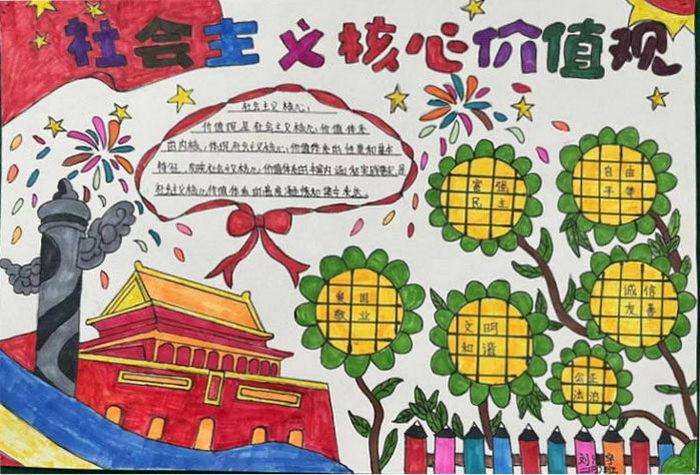 社会主义核心价值观
社会主义核心
价值观是社会主义核心价值体系
的内核，体现社会主义核心价值体系的根本性质和基本
特征，反映社会主义核心价值体系的丰富内涵和实践要求，是
社会主义核心价值体系的高度凝练和集中表达。
富强
民主
自由
平等
爱国
敬业
文明
和谐
诚信
友善
公正
法治